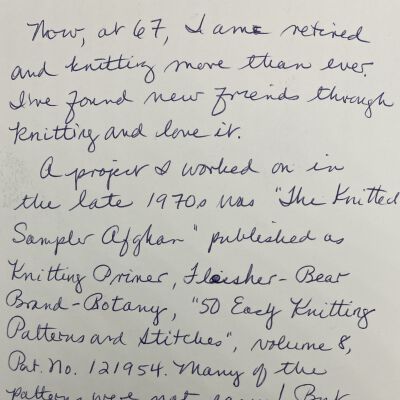 Now, at 67, I am retired
and knitting more than ever.
I've found new friends through
knitting and love it.
A project I worked on in
the late 1970s was "The Knitted
Sampler Afghan" published as
Knitting Primer, Fleisher-Bear
Brand-Botany, "50 Easy Knitting
Patterns and Stitches", volume 8,
Pat. No. 121954. Many of the
patterns were not easy! But